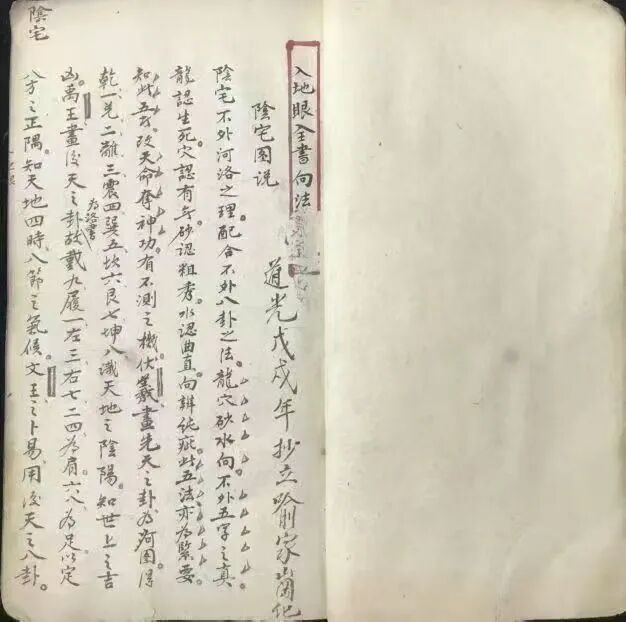 入地眼全書向法
道光戊戌年抄立喻家崗化
陰宅图説
陰宅不外河洛之理。配合不外八卦之法。龍穴砂水向。不外五字之真
龍認生死。穴認有無。砂認粗秀。水認曲直。向辨純疵。此五法亦為緊要。
知此五者。改天命奪神功。有不測之機。伏羲畫先天之卦為河图。得
乾一兑二離三震四巽五坎六艮七坤八。識天地之陰陽。知世上之吉
凶。禹王畫後天之卦。為洛書故戴九履一。左三右七。二四為肩。六八為足。以定
八方之正隅。知天地四時。八節之氣候。文王之卜易。用後天之八卦。
陰宅